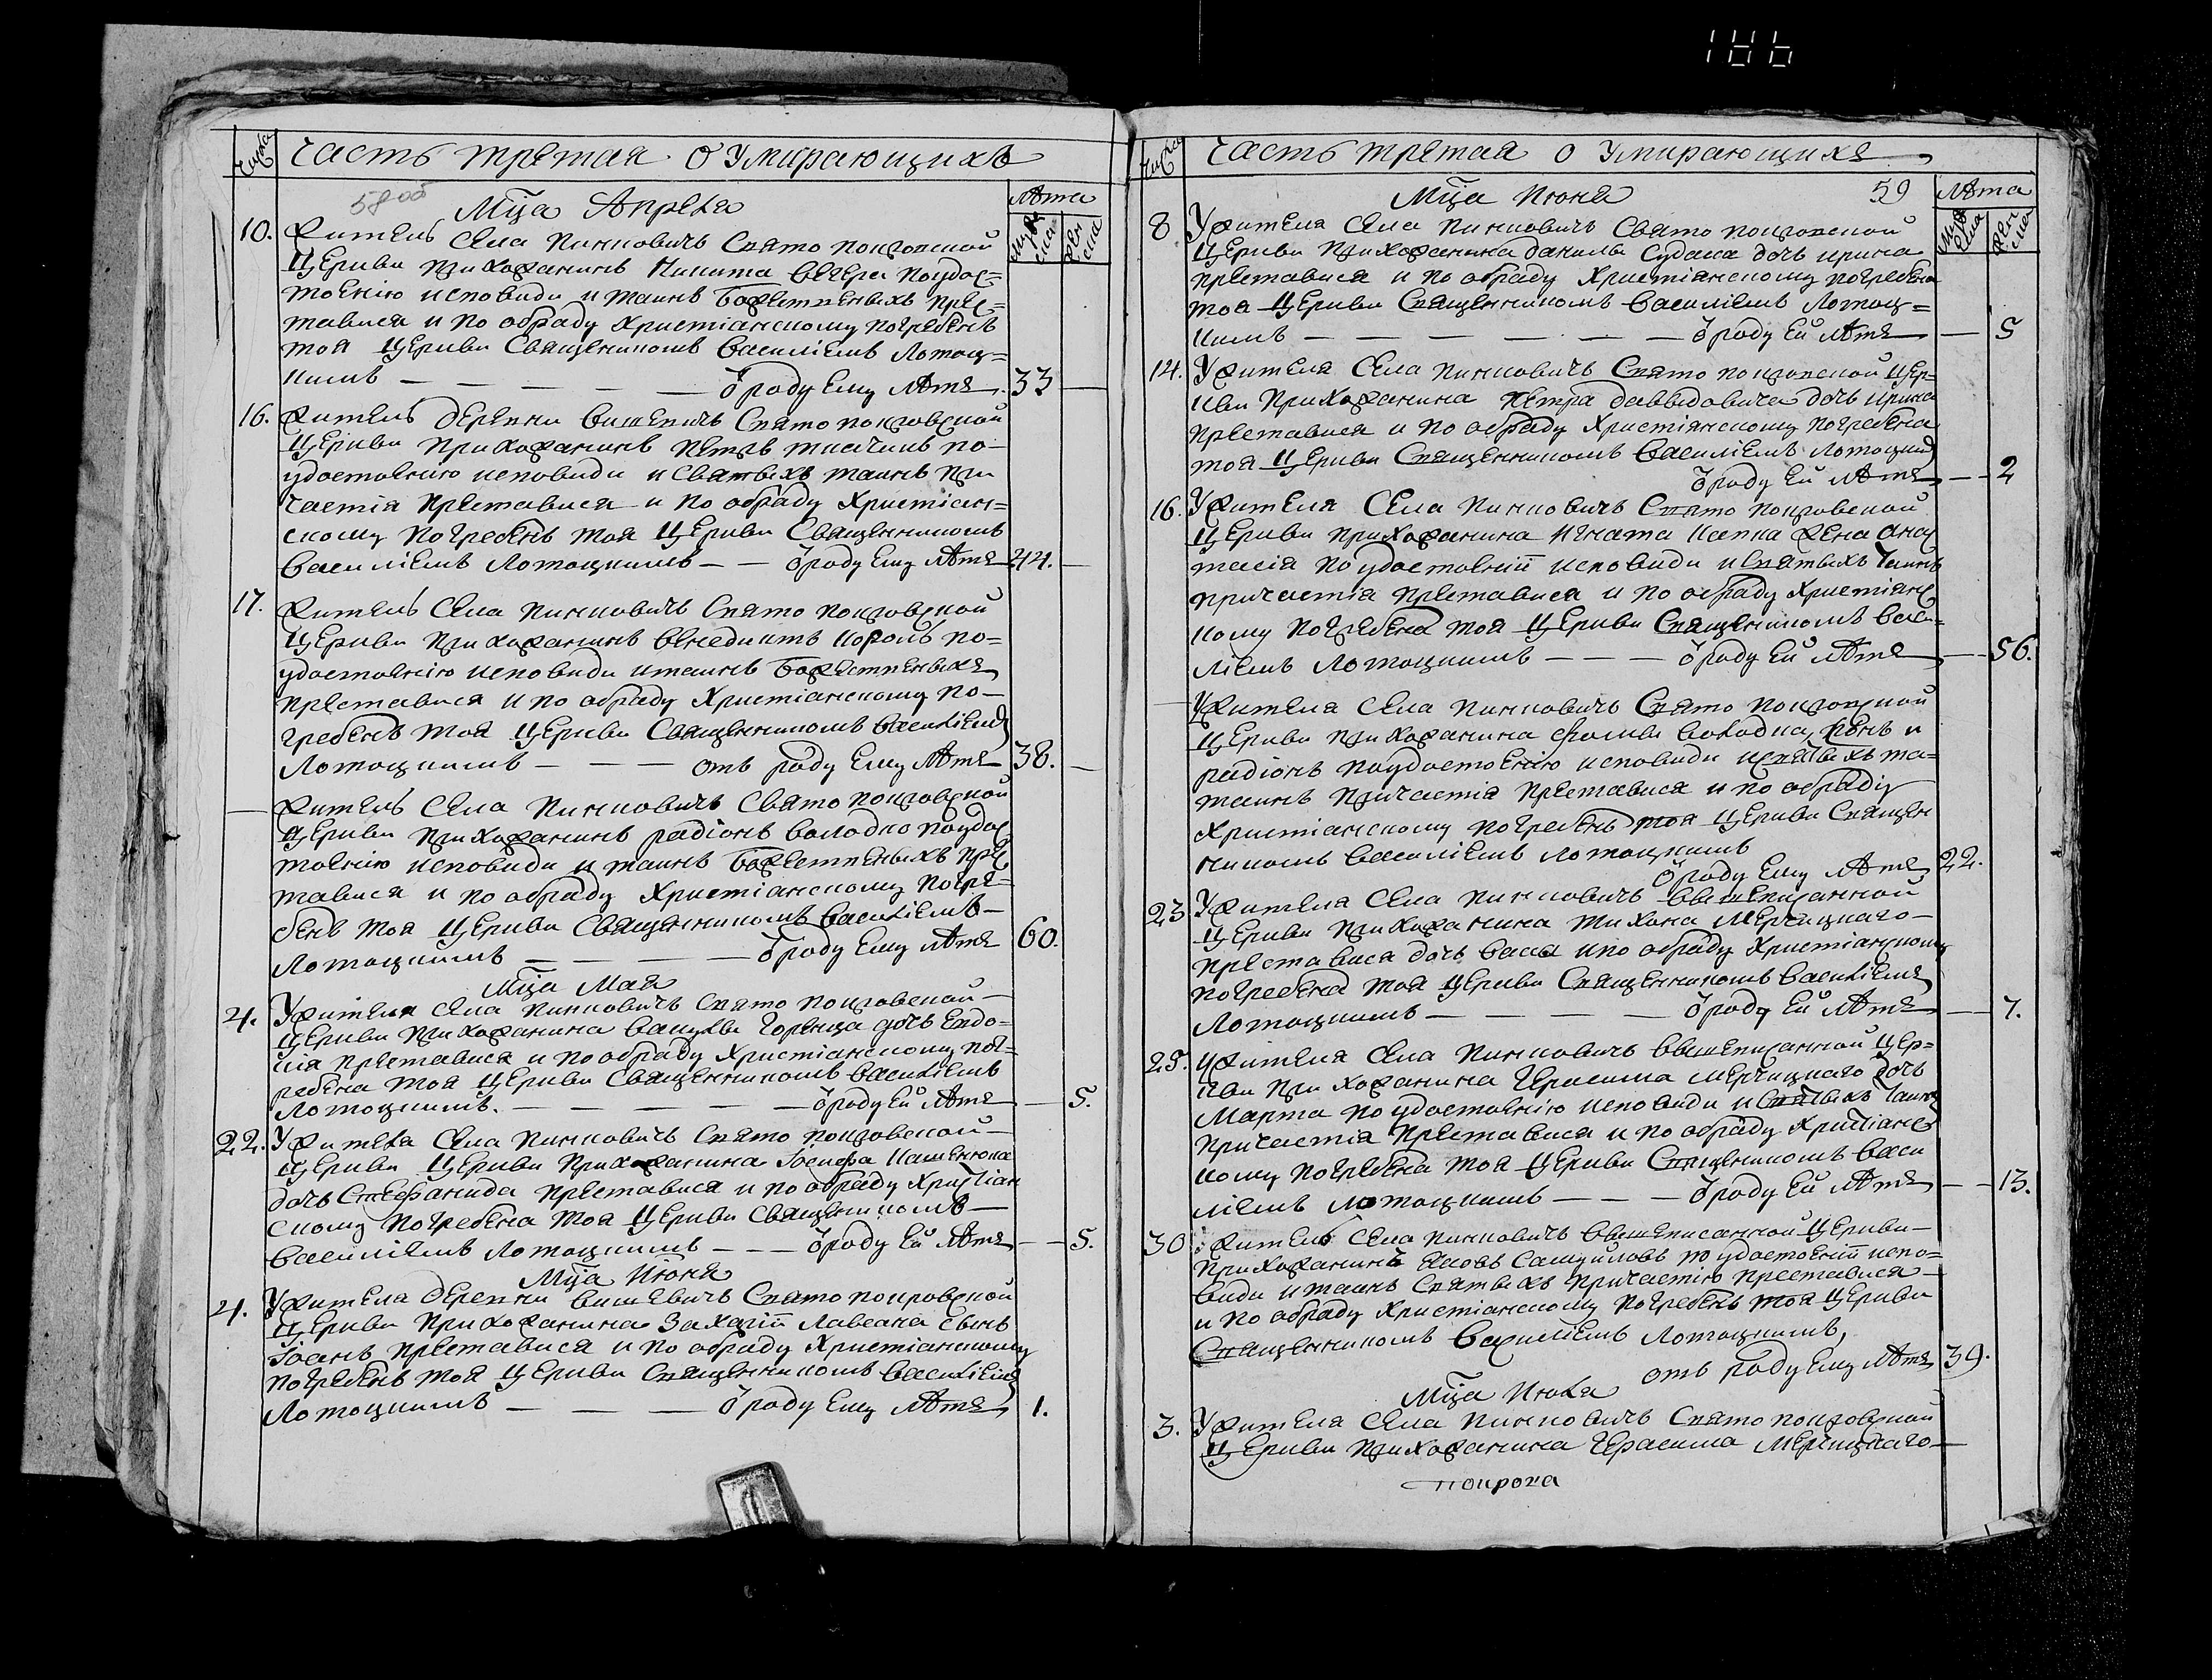 186
Числа
Часть третая о Умирающихъ
58 об
Мца Апреля
Лѣта
мужеска
женска
10. Житель села Пинковичъ Свято покровской
Церкви прихожанинъ Никита вечера поудос=
тоенїю исповиди и таинъ Божественыхъ прес=
тависа и по обраду христїанскому погребенъ
тоя Церкви Священикомъ Василїемъ Лотоц=
кимъ — — — — — ѿроду Ему лѣтъ 33 —
16. Житель деревни Вишевичъ Свято покровской
Церкви прихожанинъ Петръ по-
удостоенїю исповиди и святыхъ таинъ при
частїя преставися и по обраду христїан=
скому погребенъ тоя Церкви Священникомъ
Василїемъ Лотоцкимъ — — ѿроду Ему лѣтъ 44. —
17. Житель села Пинковичъ Свято покровской
Церкви прихожанинъ Венедиктъ Король по=
удостоенїю исповиди и таинъ Божественыхъ
преставися и по обраду христїанскому по-
гребенъ тоя Церкви Священникомъ Василїемъ
Лотоцкимъ — — — отъ роду Ему лѣтъ 38. —
— Житель села Пинковичъ Свято покровской
Церкви прихожанинъ радїонъ Володко поудос
тоенїю исповиди и таинъ Божественыхъ прес
тависа и по обраду христїанскому погре=
бенъ тоя Церкви Священникомъ Василїемъ-
Лотоцкимъ — — — — ѿроду Ему лѣтъ 60.
Мца Мая
4. Ужителя села Пинковичъ Свято покровской —
Церкви прихожанина Горенца дочь Евдо=
кїя преставися и по обраду христїанскому пог=
ребена тоя Церкви Священникомъ Василїемъ
Лотоцкимъ. — — — — — ѿроду Ей лѣтъ — 5.
22. Ужителя села Пинковичъ Свято покровской —
Церкви Церкви прихожанина Їосифа Кашенюка
дочь Стефанида преставися и по обраду христїан
скому погребена тоя Церкви Священикомъ —
Василїемъ Лотоцкимъ — — — ѿроду Ей лѣтъ — — 5.
Мца Июня
4. Ужителя деревни Вишевичъ Свято покровской
Церкви прихожанина Захарїи сынъ
Їоанъ преставися и по обраду христїанскому
погребенъ тоя Церкви Священникомъ Василїемъ
Лотоцкимъ — — — — ѿроду Ему лѣтъ 1.
Числа
Часть третая о Умирающихъ
Мца Июня
59
Лѣта
мужеска
женска
8 Ужителя села Пинковичъ Свято покровской
Церкви прихожанина данила Судака дочь ирина
преставися и по обраду христїанскому погребена
тоя Церкви Священникомъ Василїемъ Лотоц=
кимъ — — — — — — ѿроду Ей лѣтъ — 5
14. Ужителя села Пинковичъ Свято покровской Цер=
кви прихожанина Петра даввидовича дочь ирина
преставися и по обраду христїянскому погребена
тоя Церкви Священникомъ Василїемъ Лотоцким
ѿроду Ей лѣтъ — — 2
16. Ужителя села Пинковичъ Свято покровской
Церкви прихожанина Игната жена Анас
тасїя по удостоенїи исповиди и святыхъ Таинъ
причастїя преставися и по обраду христїанс
кому погребена тоя Церкви Священикомъ Васи=
лїемъ Лотоцкимъ — — — ѿроду Ей лѣтъ — — 56.
— Ужителя села Пинковичъ Свято покровской
Церкви прихожанина Фомы Володка
радїонъ поудостоенїю исповиди и святыхъ та=
таинъ причастїя преставися и по обраду
христїанскому погребенъ тоя Церкви Священ
никомъ Василїемъ Лотоцкимъ
ѿроду Ему лѣтъ 22.
23 Ужителя села Пинковичъ Вышеписанной
Церкви прихожанина Тихона Мерчицкаго —
преставися дочь Васса и по обраду христїанскому
погребена тоя Церкви Священникомъ Василїемъ
Лотоцкимъ — — — — ѿроду Ей лѣтъ — — 7.
25. Ужителя села Пинковичъ Вышеписанной Цер=
кви прихожанина Герасима Мерчицкаго дочь
Марта поудостоенїю исповиди и Святыхъ Таинъ
причастїя преставися и по обраду христїанс
кому погребена тоя Церкви Священикомъ Васи
лїемъ Лотоцкимъ — — — ѿроду Ей лѣтъ — — 13.
30 Житель села Пинковичъ Вышеписанной Церкви —
прихожанинъ Яковъ Самуйловъ по удостоенїи испо=
види и таинъ Святыхъ причастїю преставися —
и по обраду христїанскому погребенъ тоя Церкви
Священникомъ Василїемъ Лотоцкимъ,
отъ роду Ему лѣтъ 39.
Мца Июля
3. Ужителя села Пинковичъ Свято покровской
Церкви прихожанина Герасима Мерчицкаго —
покрова